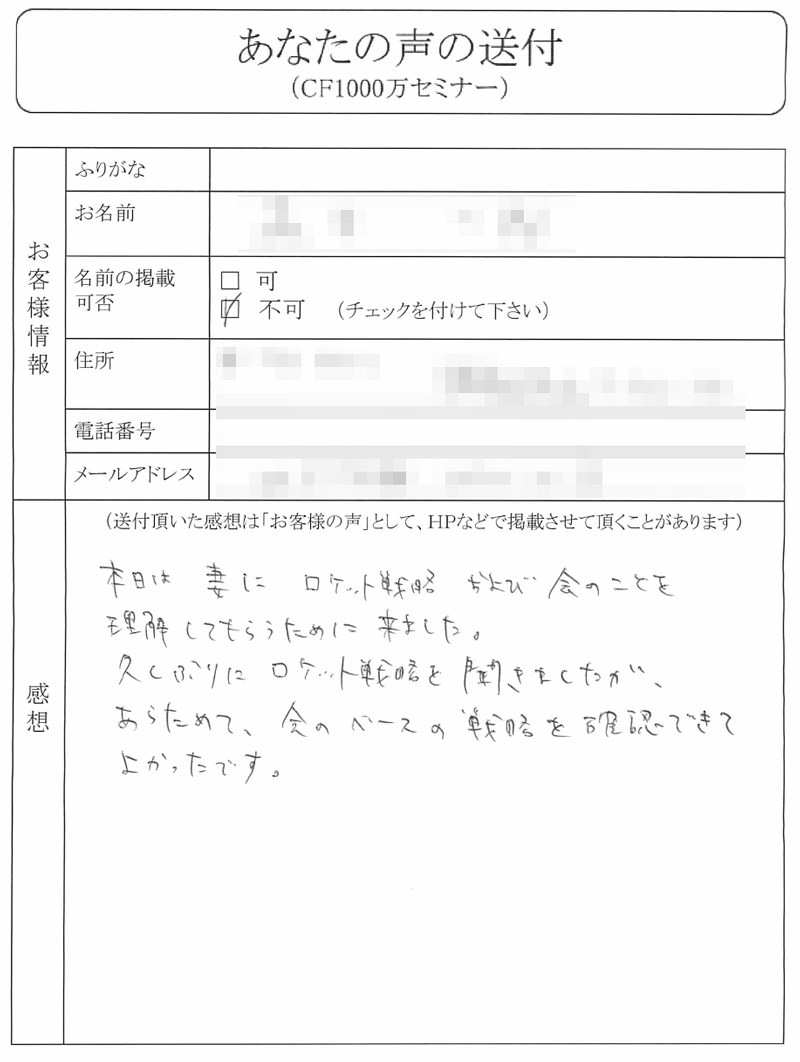 あなたの声の送付
(CF1000万セミナー)
お客様情報
ふりがな
お名前
名前の掲載可否
□ 可
☑ 不可 (チェックを付けて下さい)
住所
電話番号
メールアドレス
感想
(送付頂いた感想は「お客様の声」として、HPなどで掲載させて頂くことがあります)
本日は 妻に ロケット戦略 および 会のことを
理解してもらうために 来ました。
久しぶりに ロケット戦略を 聞きましたが、
あらためて、会の ベースの 戦略を 確認できて
よかったです。